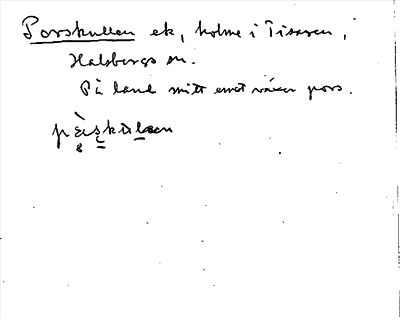 Porskullen ek, holme i Tisaren,
Halsbergs sn.
På land mitt emot växer pors.